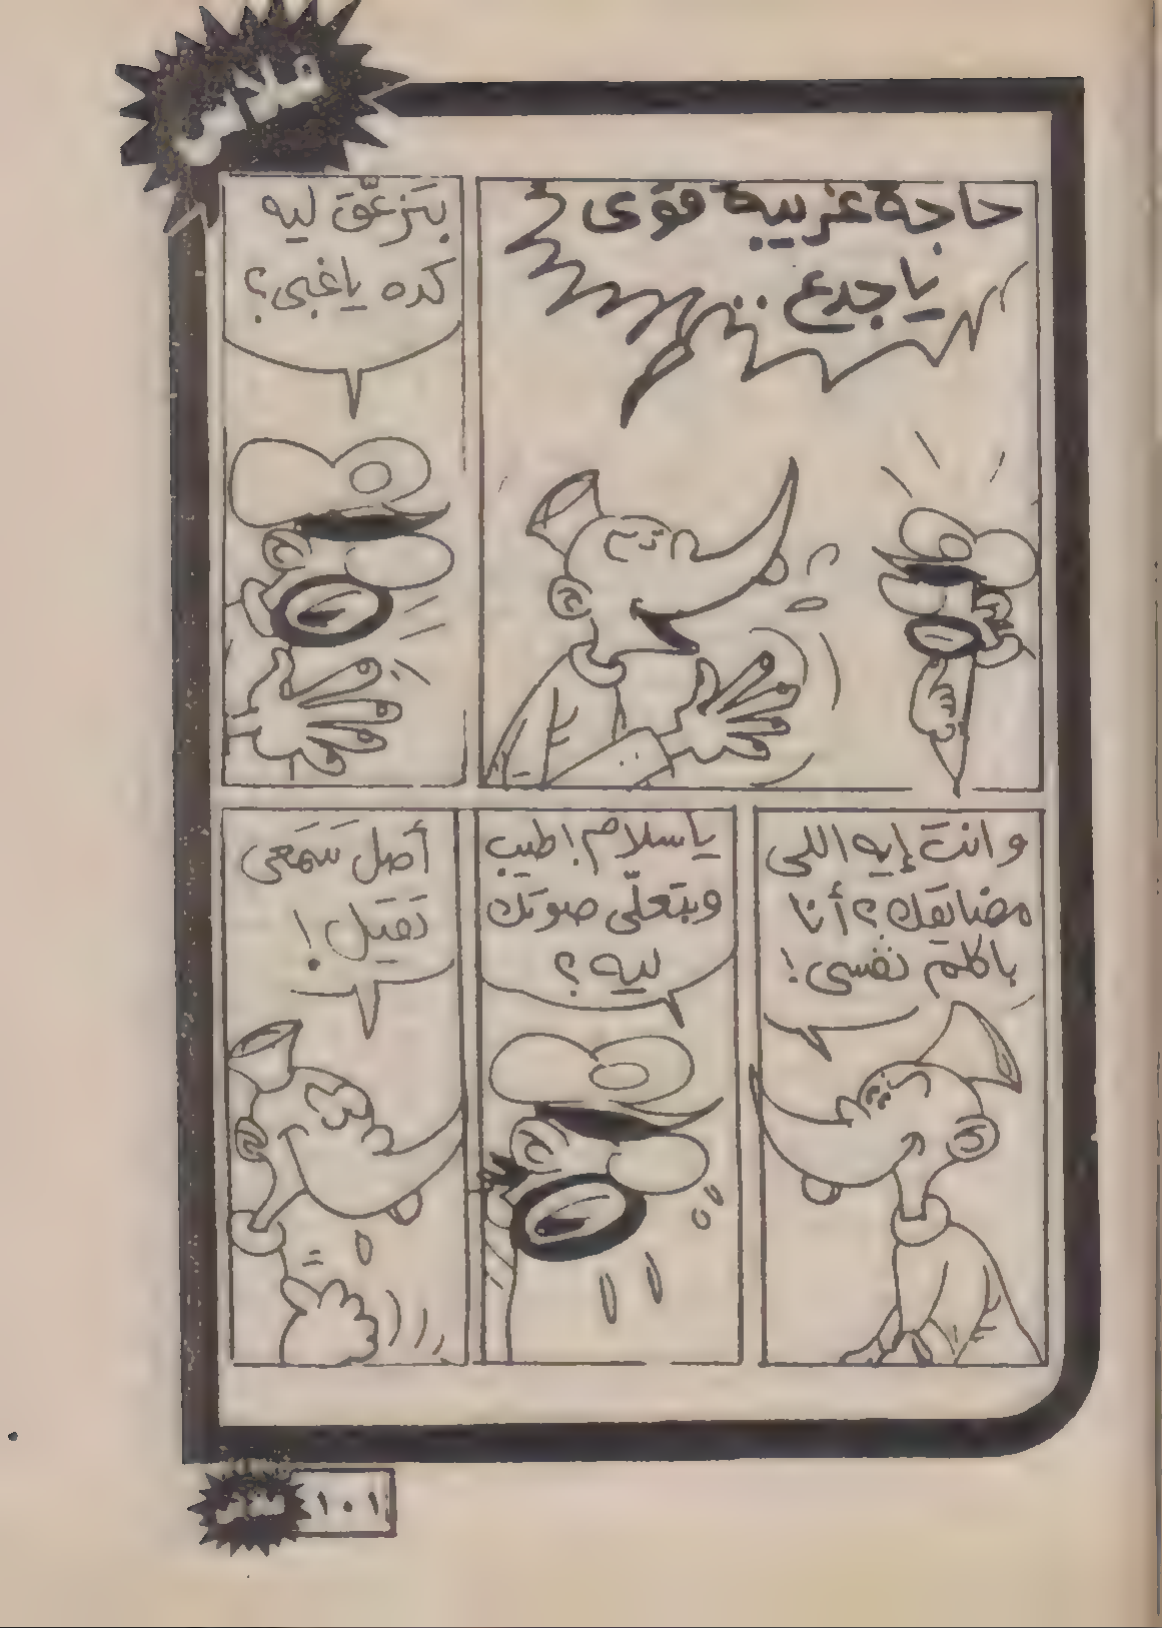 فلاش
حاجة غريبة قوى
ياجدع ..
بتزعَّق ليه
كده ياغبى؟
وانتَ إيه اللى
مضايقك؟ أنا
باكلم نفسى!
ياسلام! طيب
وبتعلّى صوتك
ليه؟
أصل سَمَعى
تقيل!
فلاش
١٠١